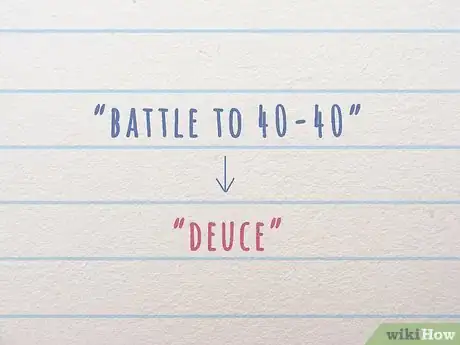 "BATTLE TO 40-40"
"DEUCE"
wikiHow